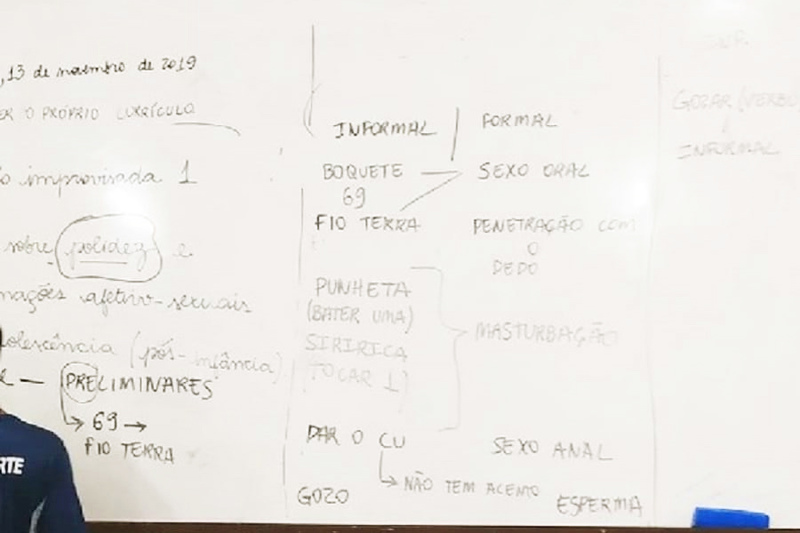 , 13 de novembro de 2019
ER O PRÓPRIO CURRÍCULO
o improvisada 1
sobre polidez e
mações afetivo-sexuais
dolescência (pós-infância)
PRELIMINARES
69
FIO TERRA
INFORMAL
FORMAL
BOQUETE
SEXO ORAL
69
FIO TERRA
PENETRAÇÃO COM
O
DEDO
PUNHETA
(BATER UMA)
SIRIRICA
(TOCAR 1)
MASTURBAÇÃO
DAR O CU
SEXO ANAL
NÃO TEM ACENTO
GOZO
ESPERMA
GOZAR (VERBO
INFORMAL
RTE